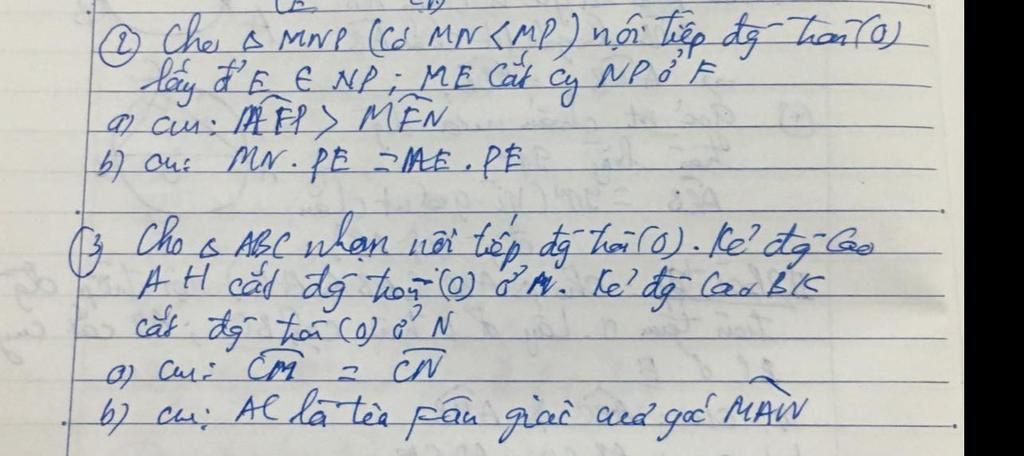 ② Cho Δ MNP (Có MN < MP) nội tiếp đg tròn (O)
lấy đ' E ∈ NP ; ME cắt cg NP ở F
a) cm: MEP > MEN
b) cm: MN . PE = ME . PE
③ Cho Δ ABC nhọn nội tiếp đg tròn (O). Kẻ đg cao
AH cắt đg tròn (O) ở M. Kẻ đg cao BK
cắt đg tròn (O) ở N
a) cm: CM = CN
b) cm: AC là tia phân giác của góc MAN